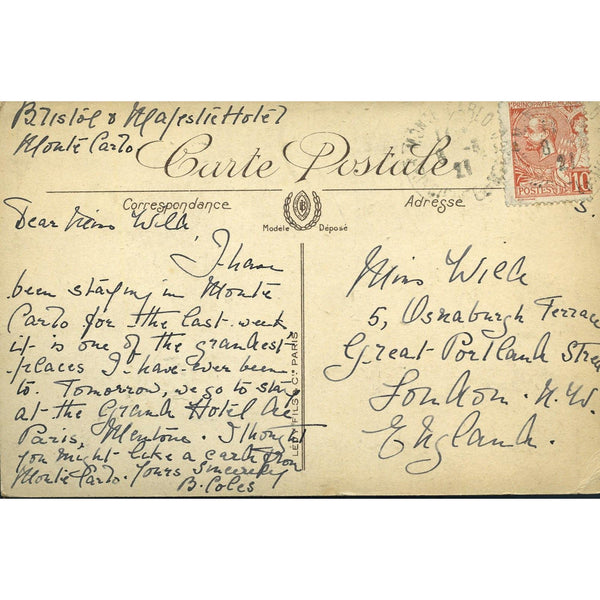 Bristol & Majestic Hotel
Monte Carlo
Carte Postale
Correspondance
Adresse
Modèle Déposé
B
Dear Miss Wild
I have
been staying in Monte
Carlo for the last week,
it is one of the grandest
places I have ever been
to. Tomorrow, we go to stay
at the Grand Hotel de
Paris, Mentone. I thought
you might like a card from
Monte Carlo. Yours Sincerely
B. Coles
LEVY FILS & Cie PARIS
Miss Wild
5, Osnaburgh Terrace
Great Portland Stree
London. N.W.
England.
S.
POSTES
10